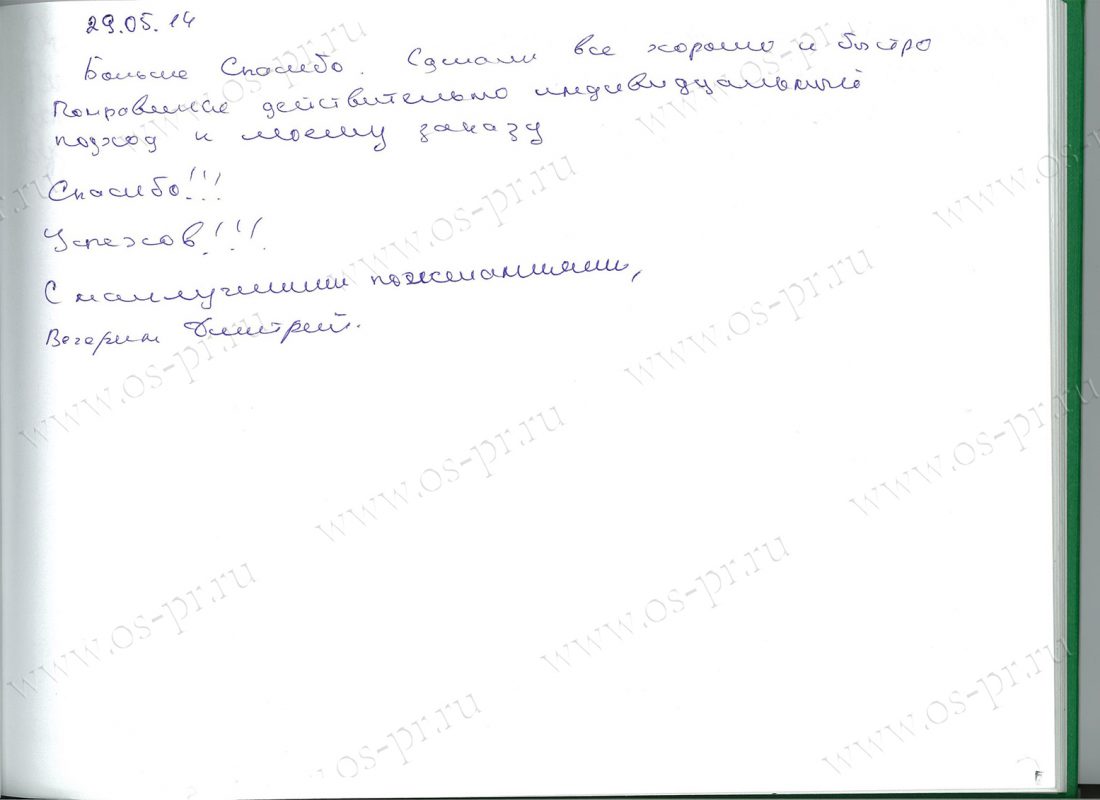 29.05.14
Большое Спасибо. Сделали все хорошо и быстро
Понравился действительно индивидуальный
подход к моему заказу
Спасибо!!!
Успехов!!!
С наилучшими пожеланиями,
Вечерин Дмитрий.
www.os-pr.ru
www.os-pr.ru
www.os-pr.ru
www.os-pr.ru
www.os-pr.ru
www.os-pr.ru
www.os-pr.ru
www.os-pr.ru
www.os-pr.ru
www.os-pr.ru
www.os-pr.ru